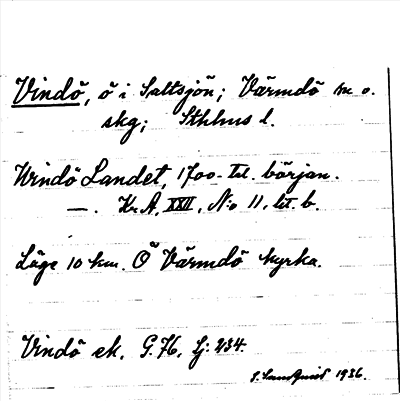 Vindö, ö i Saltsjön; Värmdö sn o.
skg; Sthlms l.
Windö Landet, 1700-tal. början.
—. Kr. A. XXII, No 11, lit. b.
Läge 10 km. Ö Värmdö kyrka.
Vindö ek. G. 76, j: 234.
1936.